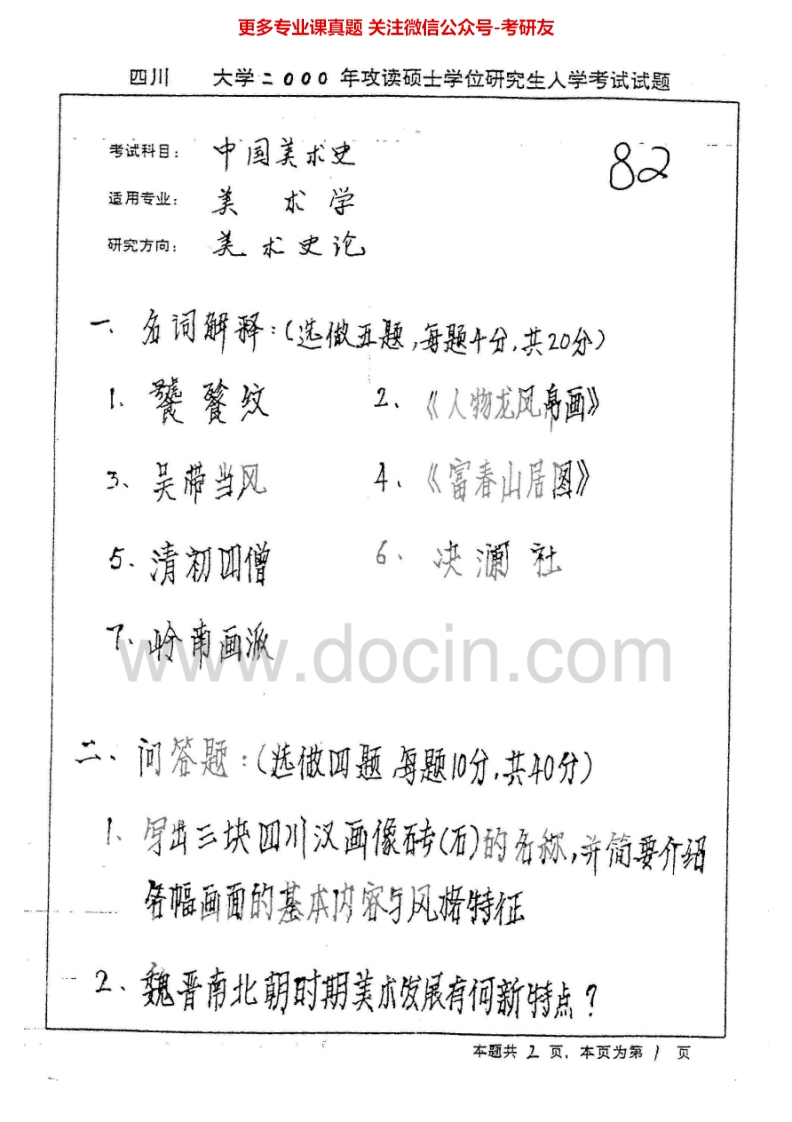 更多专业课真题 关注微信公众号-考研友
四川 大学二000年攻读硕士学位研究生入学考试试题
考试科目: 中国美术史
82
适用专业: 美 术 学
研究方向: 美术史论
一、名词解释:(选做五题,每题4分,共20分)
1、饕餮纹 2、《人物龙凤帛画》
3、吴带当风 4、《富春山居图》
5、清初四僧 6、决澜社
7、岭南画派
www.docin.com
二、问答题:(选做四题,每题10分,共40分)
1、写出三块四川汉画像砖(石)的名称,并简要介绍
各幅画面的基本内容与风格特征
2、魏晋南北朝时期美术发展有何新特点?
本题共 2 页,本页为第 1 页